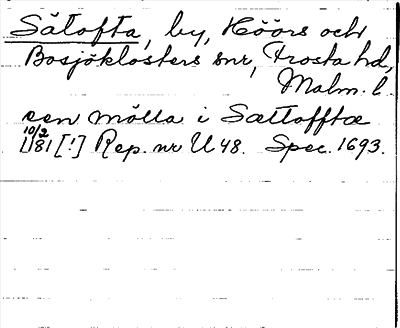 Sätofta, by, Höörs och
Bosjöklosters snr, Frosta hd,
Malm. l.
een mölla i Sætlofftæ
10/2 1181 [!] Rep. nr U 48. Spec. 1693.